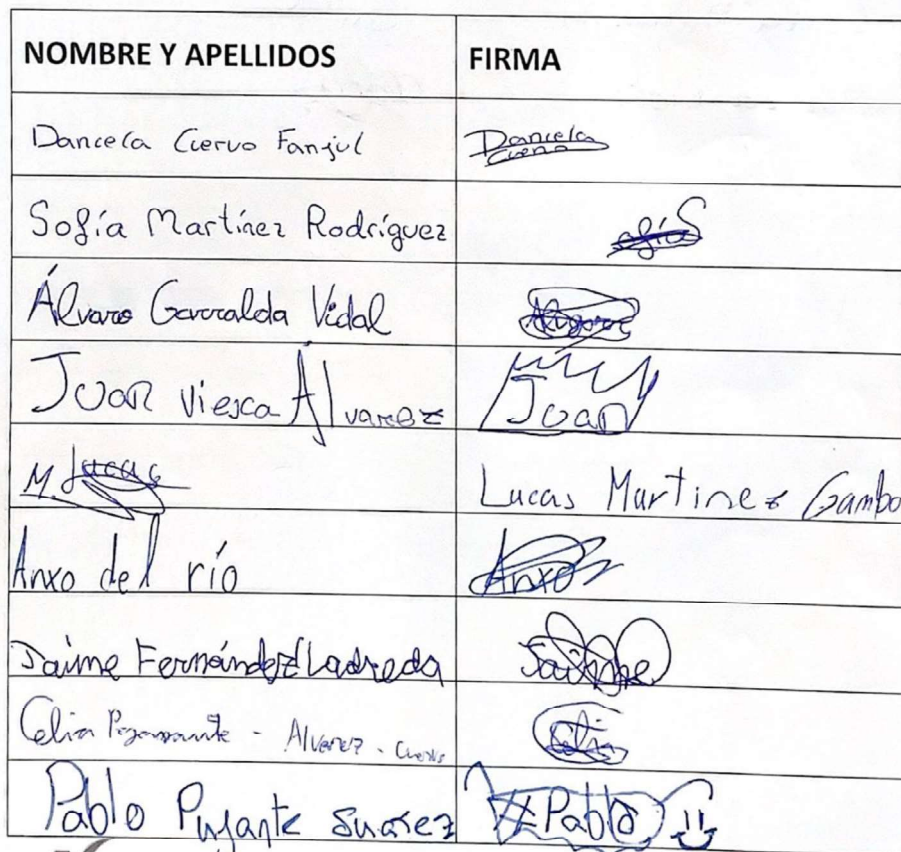 NOMBRE Y APELLIDOS FIRMA
Daniela Cuervo Fanjul Daniela Cuervo
Sofía Martínez Rodríguez
Álvaro Garralda Vidal Álvaro
Juan Viesca Álvarez Juan
M Lucas Lucas Martinez Gambo
Anxo del río Anxo
Jaime Fernández Ladreda Jaime
Celia - Alvarez - Cuervo Celia
Pablo Pujante Suarez #Pablo